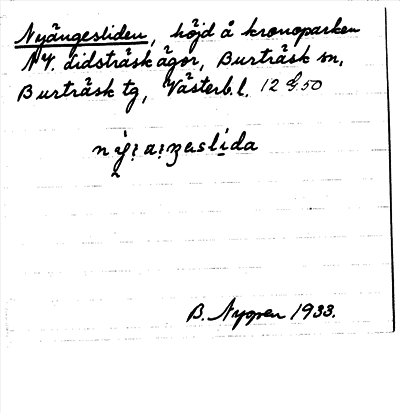 Nyängesliden, höjd å kronoparken
NV. Lidsträsk ägor, Burträsk sn,
Burträsk tg, Västerb.l. 12 G 50
B. Nygren 1933.